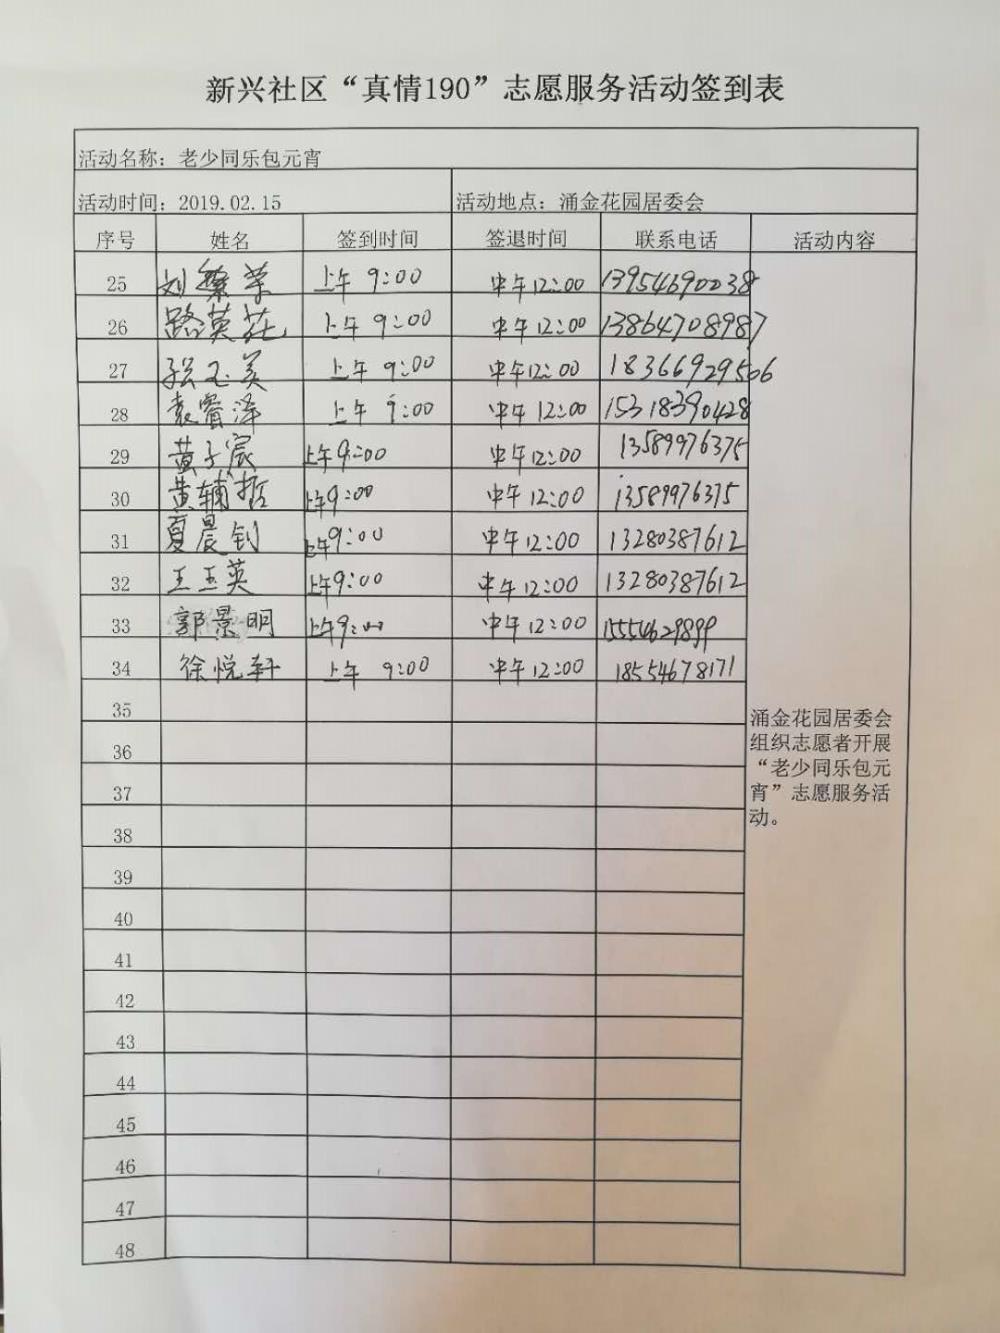 新兴社区“真情190”志愿服务活动签到表
活动名称：老少同乐包元宵
活动时间：2019.02.15 活动地点：涌金花园居委会
序号 姓名 签到时间 签退时间 联系电话 活动内容
25 刘 荣 上午 9:00 中午12:00 13954690038
26 路英花 上午 9:00 中午12:00 13864708987
27 张玉美 上午 9:00 中午12:00 18366929506
28 袁睿泽 上午 9:00 中午12:00 15318390428
29 黄子宸 上午9:00 中午12:00 13589976375
30 黄辅哲 上午9:00 中午12:00 13589976375
31 夏晨钊 上午9:00 中午12:00 13280387612
32 王玉英 上午9:00 中午12:00 13280387612
33 郭景明 上午9:00 中午12:00 15554629899
34 徐悦轩 上午 9:00 中午12:00 18554678171
35
36
37
38
39
40
41
42
43
44
45
46
47
48
涌金花园居委会
组织志愿者开展
“老少同乐包元
宵”志愿服务活
动。